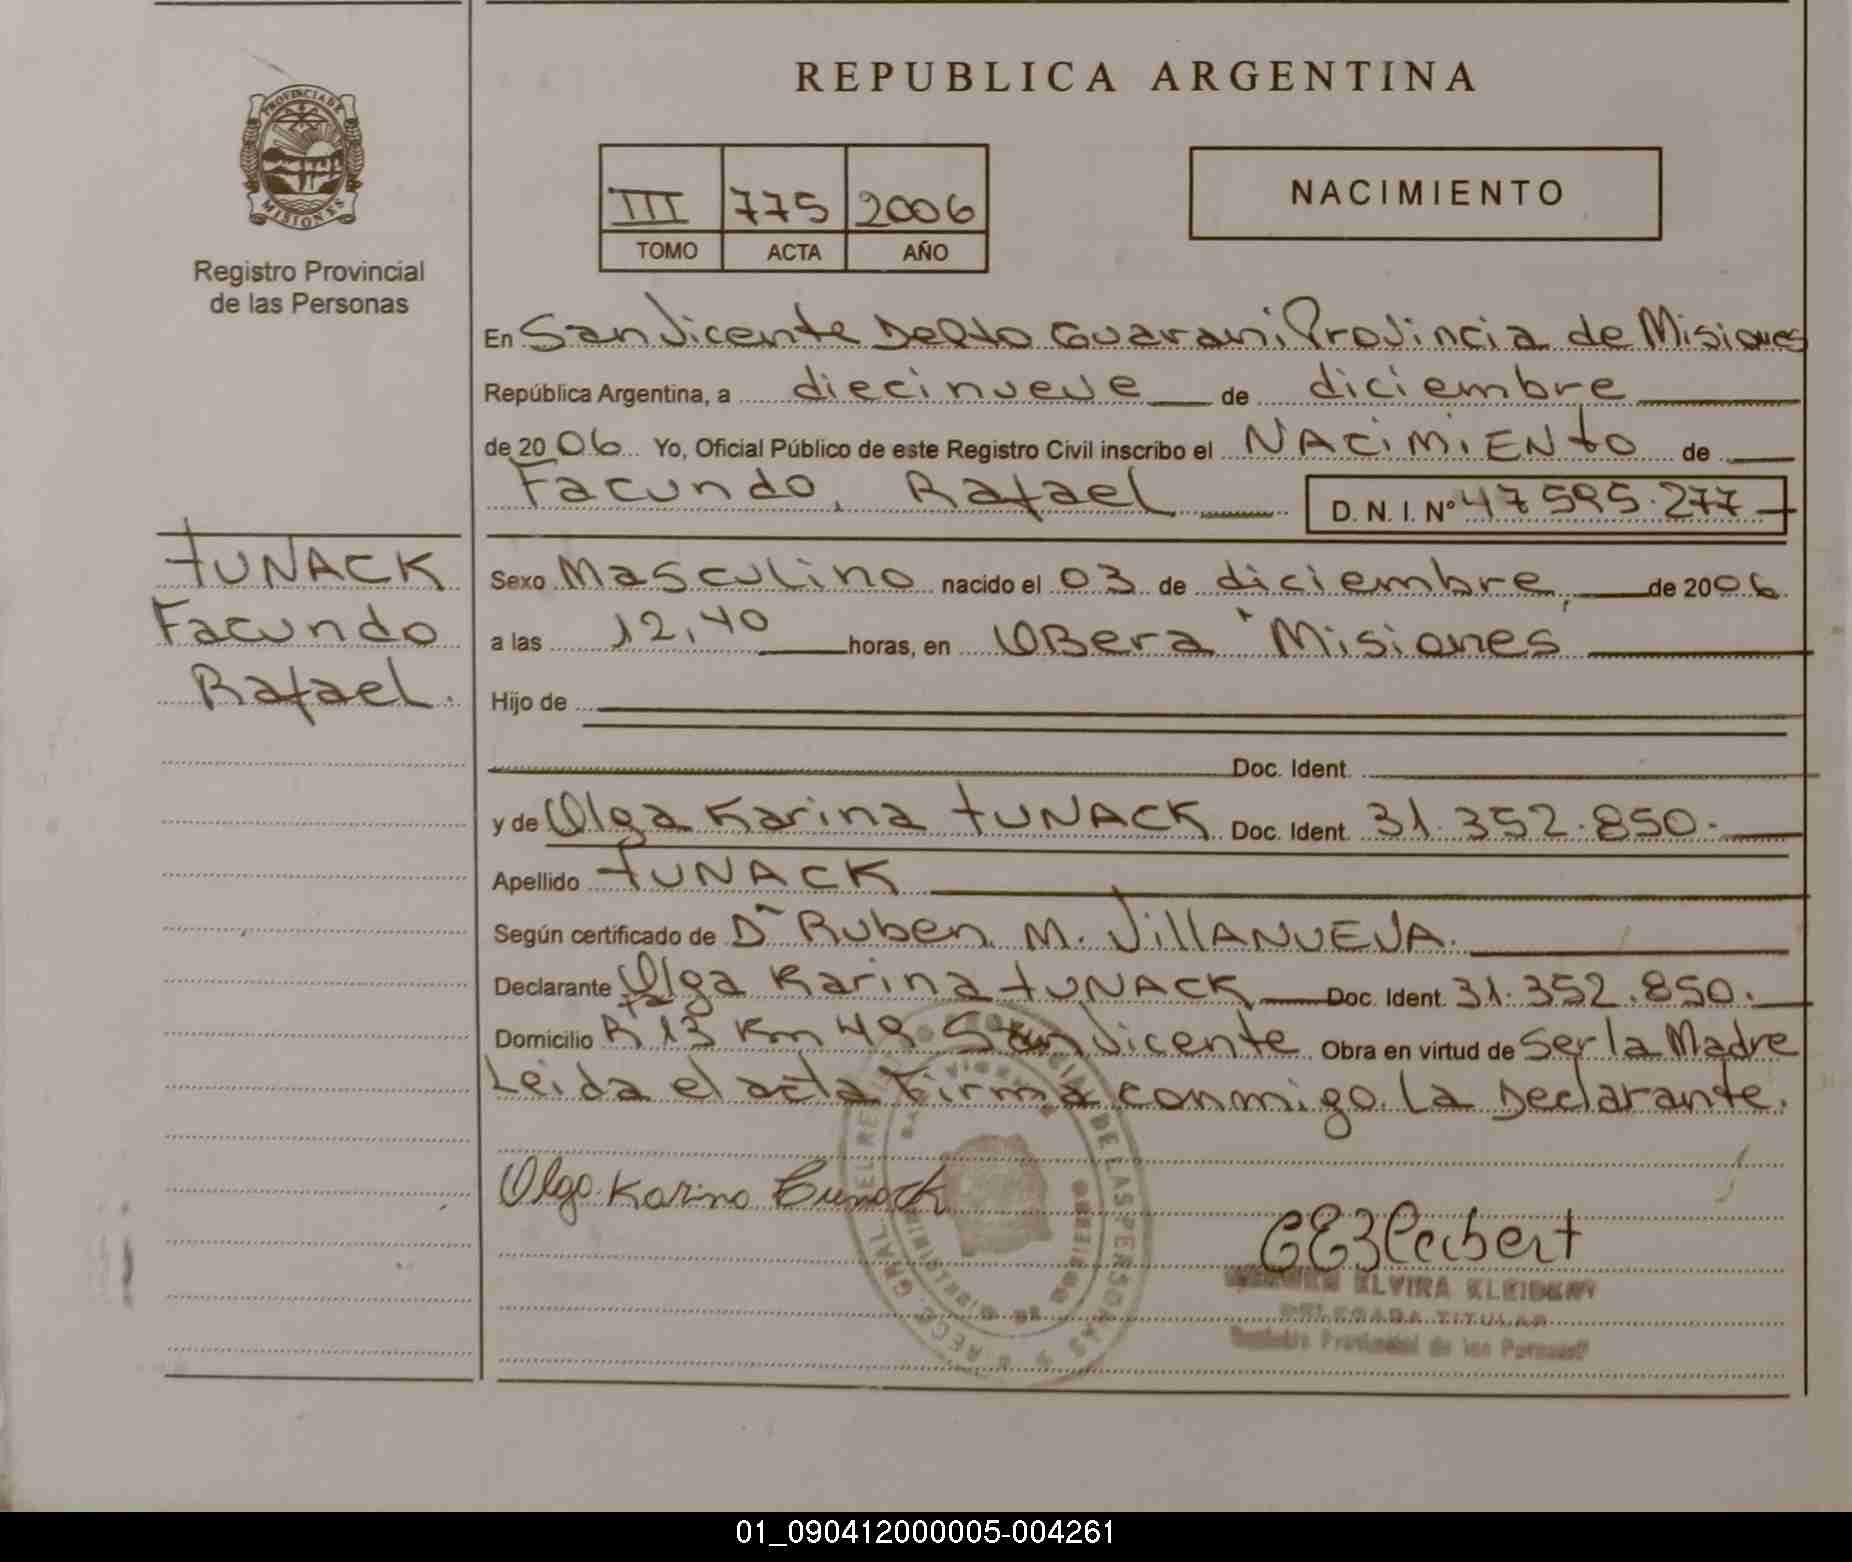 REPUBLICA ARGENTINA
PROVINCIA DE
MISIONES
Registro Provincial
de las Personas
III 775 2006
TOMO ACTA AÑO
NACIMIENTO
En San Vicente Depto Guarani Provincia de Misiones
República Argentina, a diecinueve de diciembre
de 2006 Yo, Oficial Público de este Registro Civil inscribo el NACIMIENTO de
Facundo, Rafael D. N. I. Nº 47595.277
TUNACK
Facundo
Rafael.
Sexo Masculino nacido el 03 de diciembre, de 2006
a las 12,40 horas, en OBera Misiones
Hijo de
Doc. Ident.
y de Olga Karina TUNACK Doc. Ident. 31.352.850.
Apellido TUNACK
Según certificado de Dr Ruben M. VillANUEVA.
Declarante Olga Karina TUNACK Doc. Ident. 31.352.850.
Domicilio R 13 Km 48 San Vicente Obra en virtud de Ser la Madre
Leida el acta Firma conmigo la Declarante.
Olga Karina Tunack
ELVIRA
DELEGADA TITULAR
Registro Provincial de las Personas
01_090412000005-004261